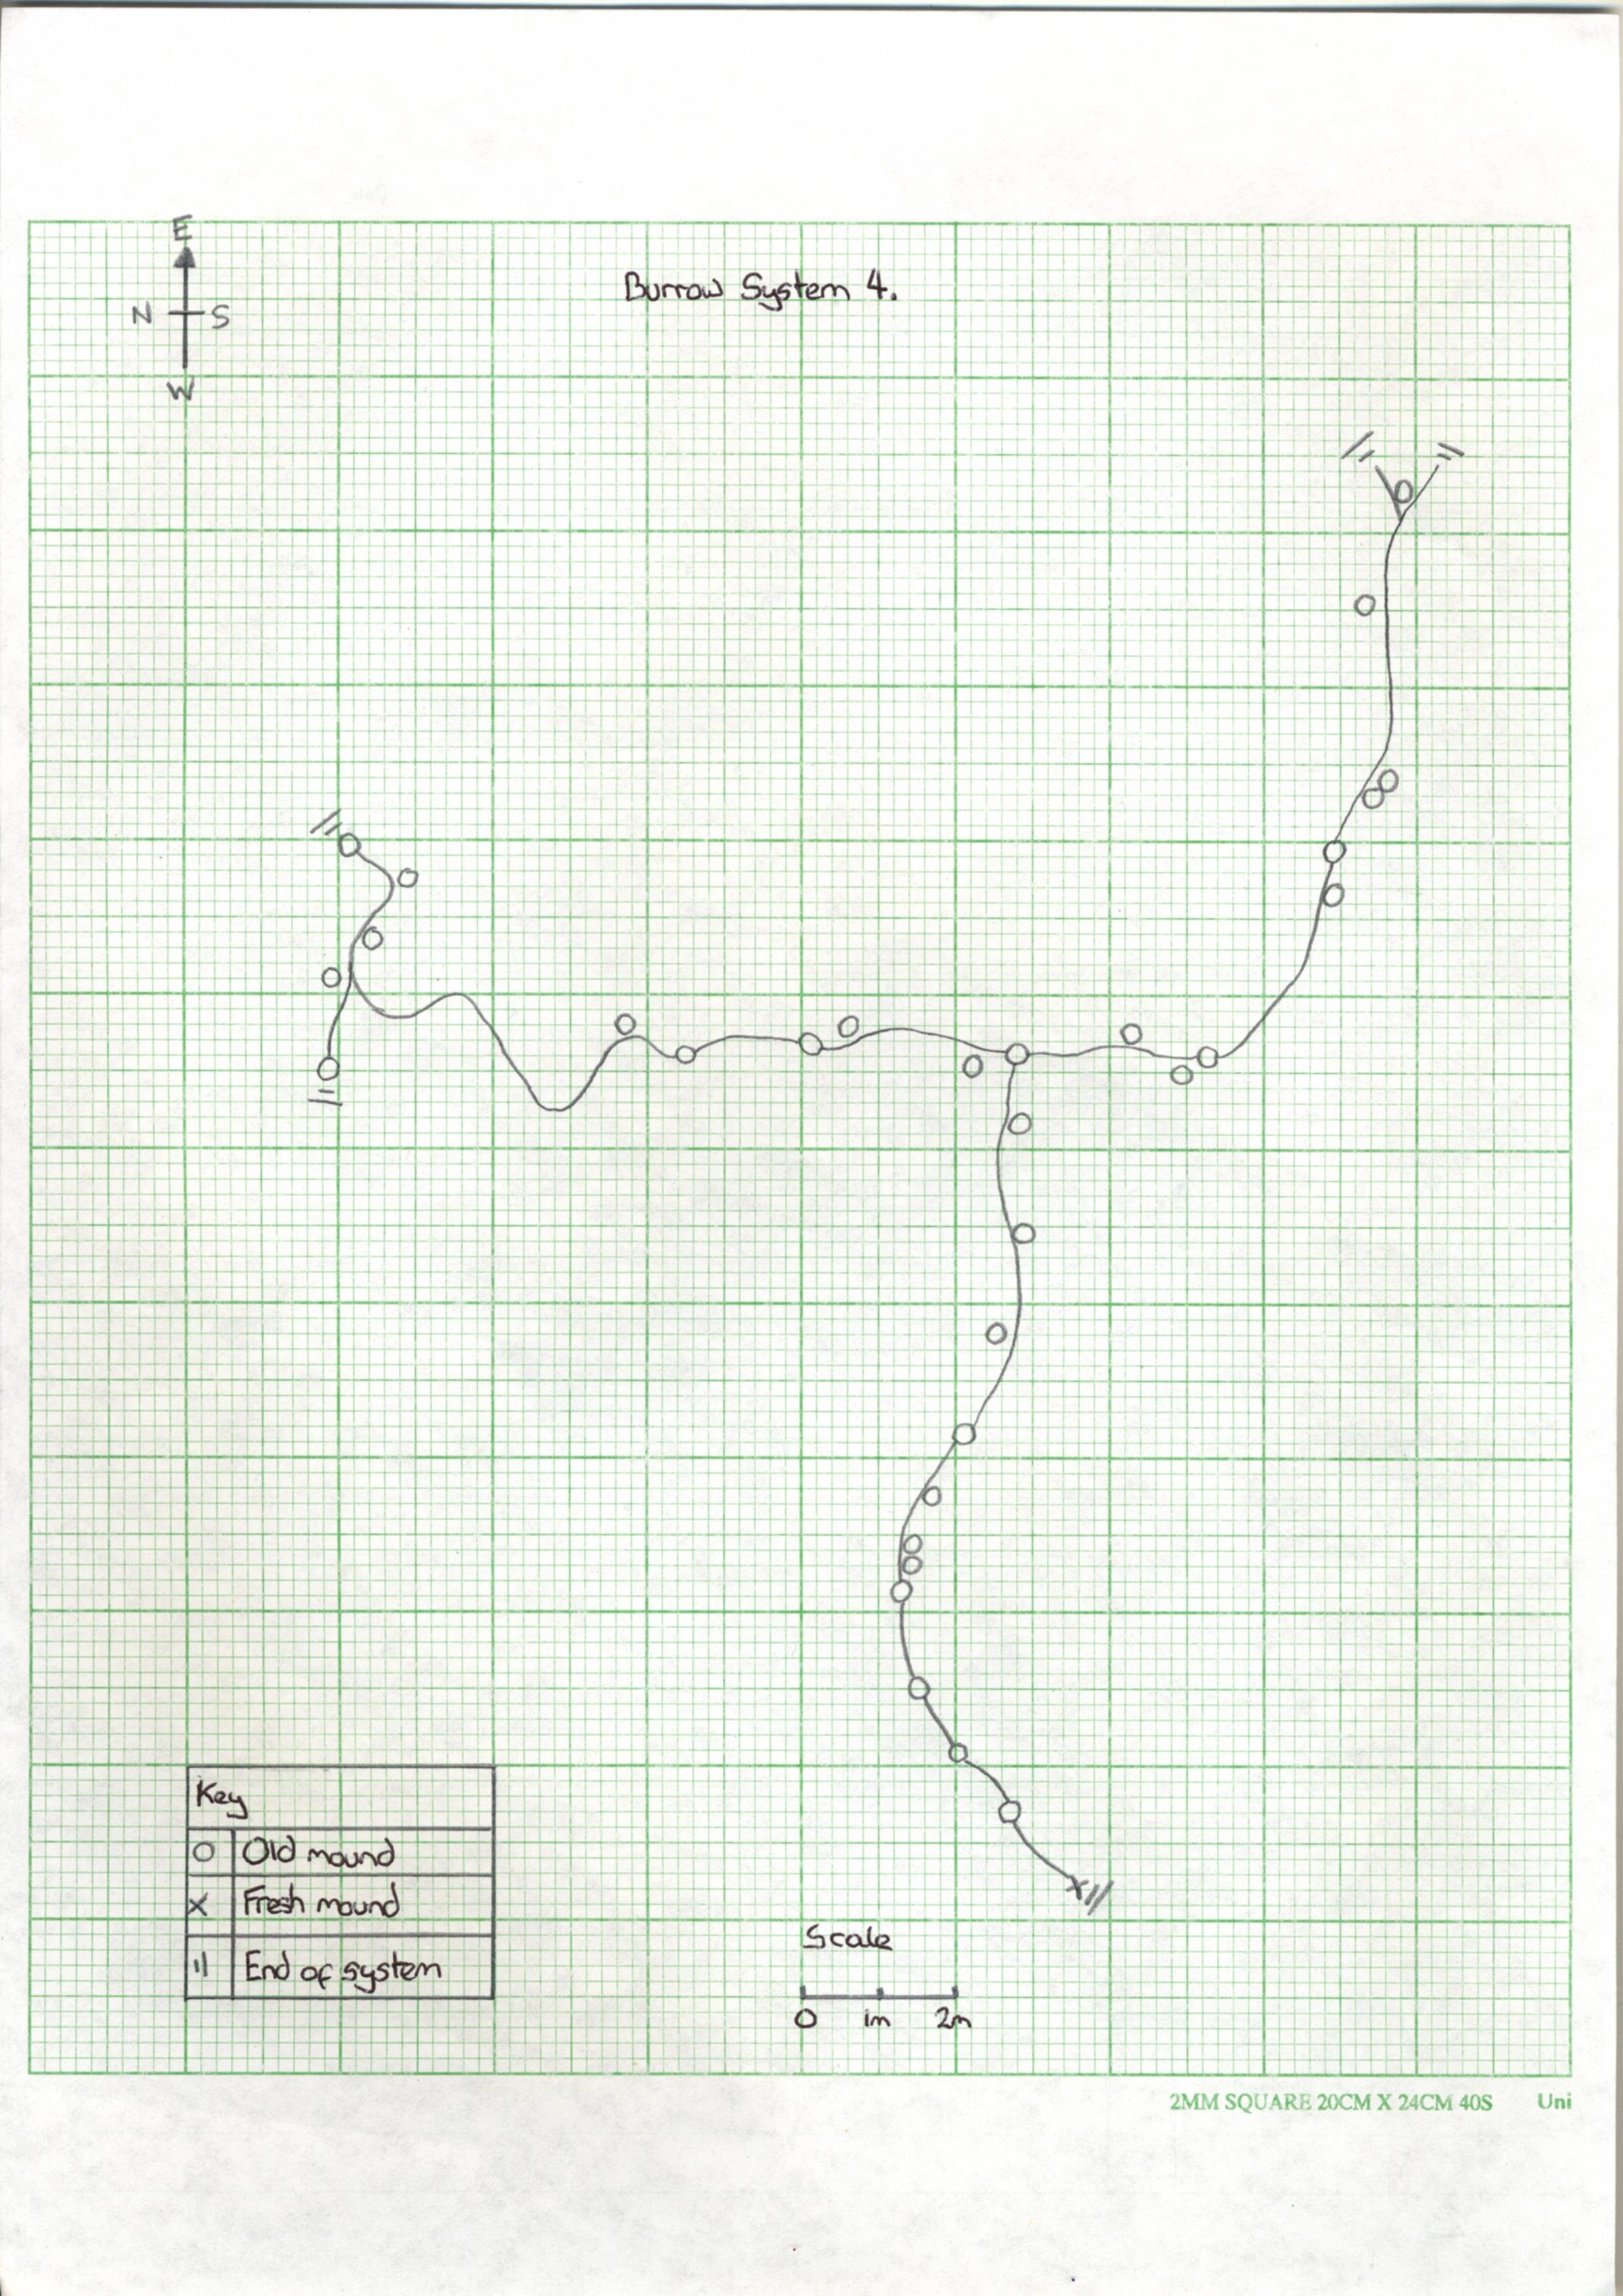 E
Burrow System 4.
N S
W
Key
O Old mound
X Fresh mound
|| End of system
Scale
0 1m 2m
2MM SQUARE 20CM X 24CM 40S Uni